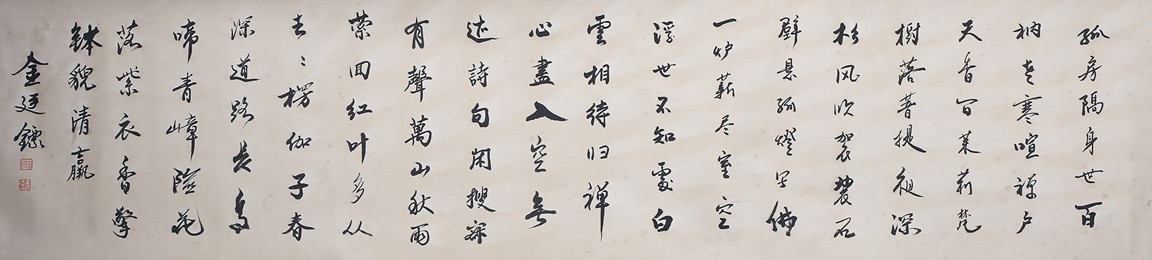 孤房隔身世百
衲老寒喧禅户
天香回茉莉梵
樹落菩提夜深
杉风吹袈裟石
壁悬孤燈写佛
一炉薪尽室空
浮世不知處白
雲相待归禅
心盡入空無
迹詩句閑搜寂
有聲萬山秋雨
萦回红叶多从
楞伽子春
深道路长鸟
啼青嶂险花
落紫衣香擎
鉢貌清羸
金廷鏢